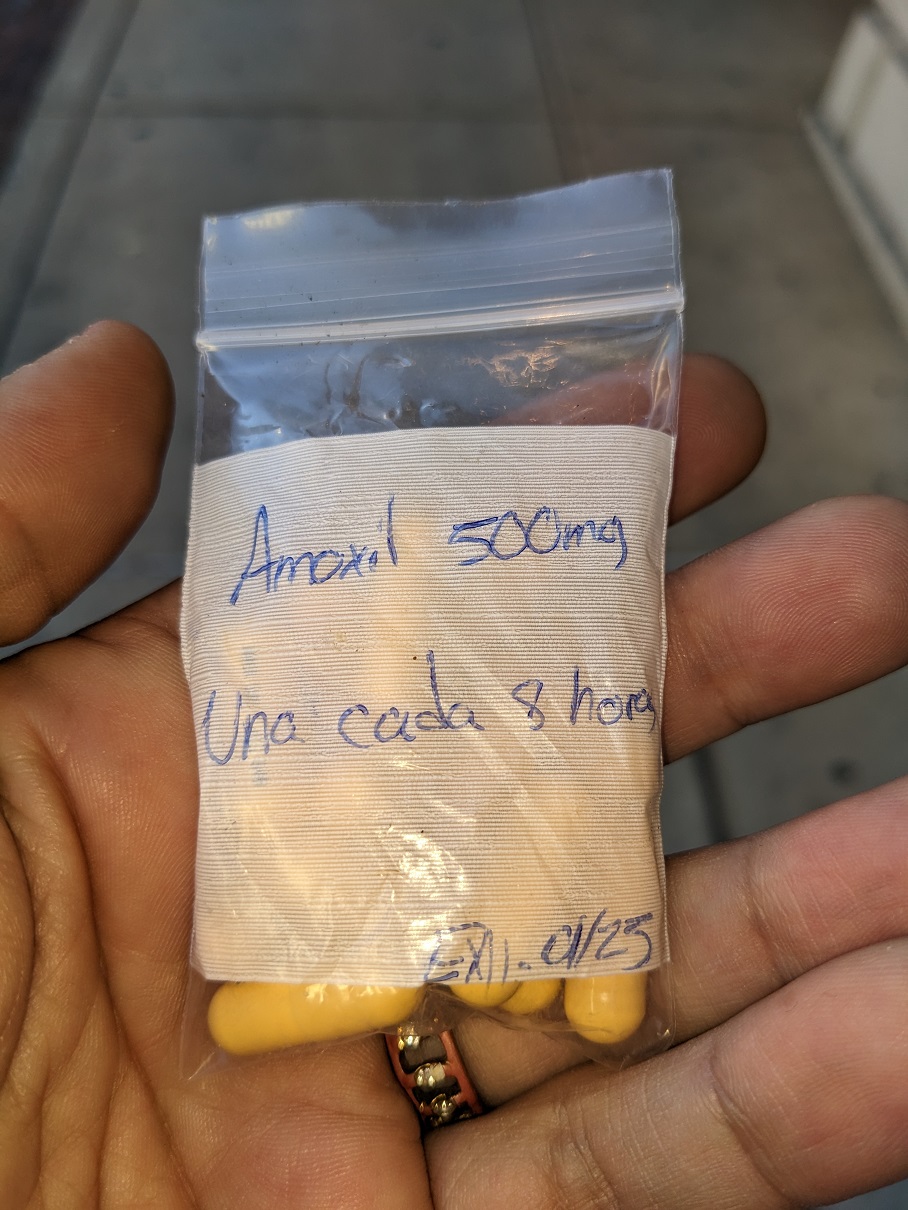 Amoxil 500mg
Una cada 8 horas
EXP. 01/25